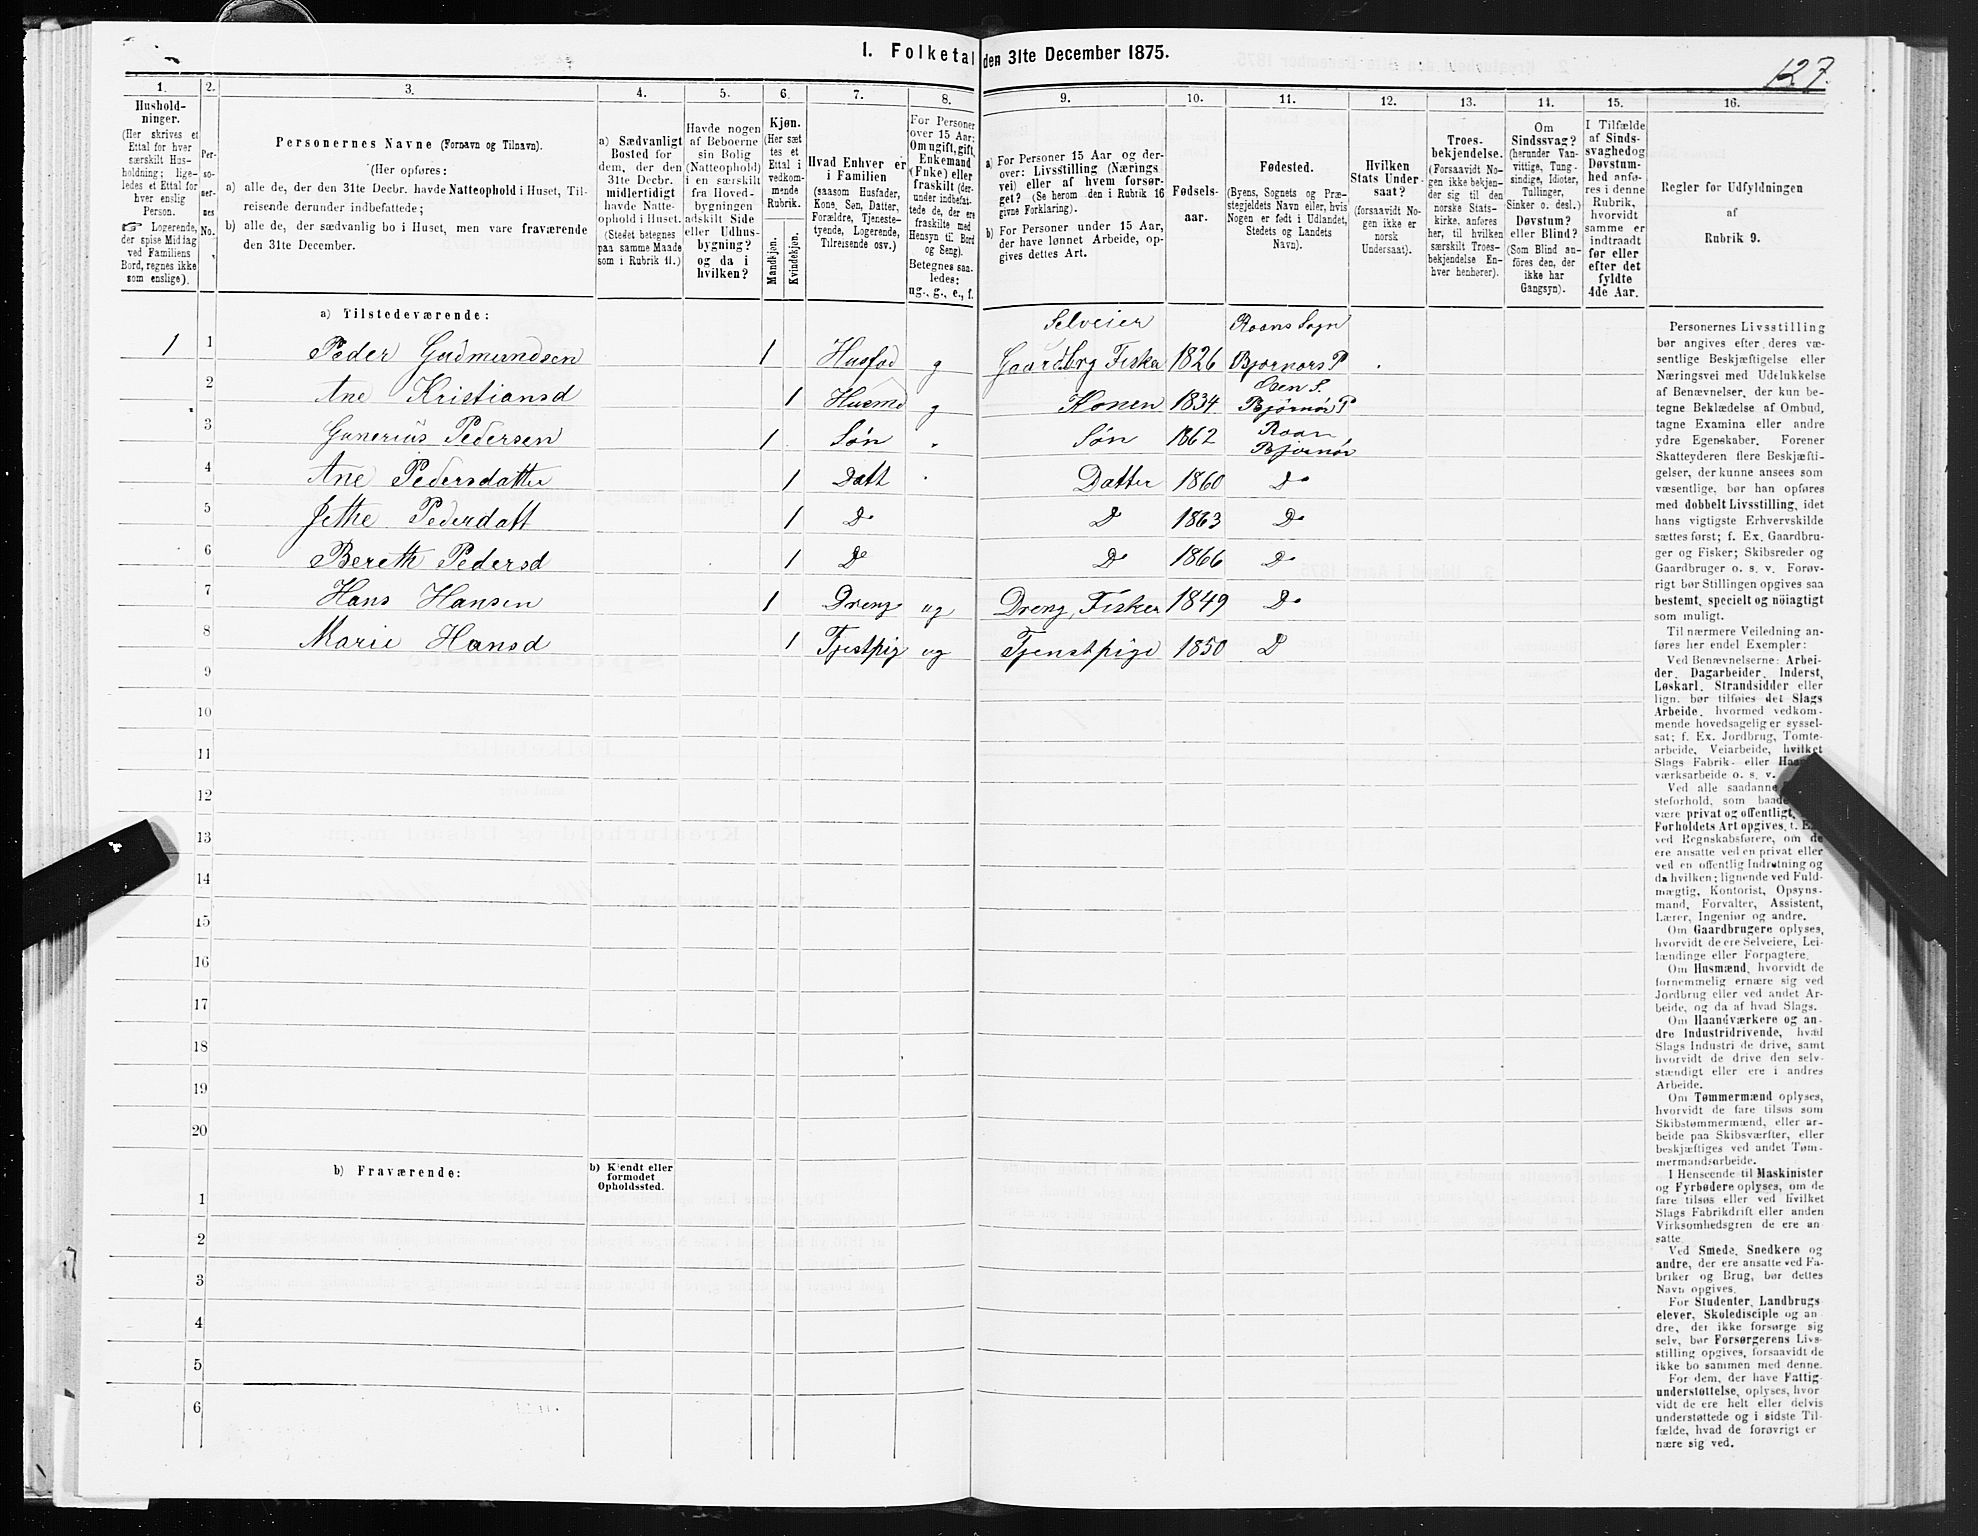 1. Folketal den 31te December 1875.
127.
1.
Hushold-
ninger.
(Her skrives et
Ettal for hver
særskilt Hus-
holdning; lige-
ledes et Ettal for
hver enslig
Person.
☞ Logerende,
der spise Middag
ved Familiens
Bord, regnes ikke
som enslige).
2.
Per-
so-
ner-
nes
No.
3.
Personernes Navne (Fornavn og Tilnavn).
(Her opføres:
a) alle de, der den 31te Decbr. havde Natteophold i Huset, Til-
reisende derunder indbefattede;
b) alle de, der sædvanlig bo i Huset, men vare fraværende
den 31te December.
4.
a) Sædvanligt
Bosted for
dem, der den
31te Decbr.
midlertidigt
havde Natte-
ophold i Huset.
(Stedet betegnes
paa samme Maade
som i Rubrik 11.)
5.
Havde nogen
af Beboerne
sin Bolig
(Natteophold)
i en særskilt
fra Hoved-
bygningen
adskilt Side
eller Udhus-
bygning?
og da i
hvilken?
6.
Kjøn.
(Her sæt
tes et
Ettal i
vedkom-
mende
Rubrik.
Mandkjøn.
Kvindekjøn.
7.
Hvad Enhver er
i Familien
(saasom Husfader,
Kone, Søn, Datter,
Forældre, Tjeneste-
tyende, Logerende,
Tilreisende osv.)
8.
For Personer
over 15 Aar:
Om ugift, gift,
Enkemand
(Enke) eller
fraskilt (der-
under indbefat-
tede de, der ere
fraskilte med
Hensyn til Bord
og Seng).
Betegnes saa-
ledes:
ug., g., e., f.
9.
a) For Personer 15 Aar og der-
over: Livsstilling (Nærings
vei) eller af hvem forsør-
get? (Se herom den i Rubrik 16
givne Forklaring).
b) For Personer under 15 Aar,
der have lønnet Arbeide, op-
gives dettes Art.
10.
Fødsels-
aar.
11.
Fødested.
(Byens, Sognets og Præ-
stegjeldets Navn eller, hvis
Nogen er født i Udlandet,
Stedets og Landets
Navn).
12.
Hvilken
Stats Under-
saat?
(forsaavidt No-
gen ikke er
norsk
Undersaat).
13.
Troes-
bekjendelse.
(Forsaavidt No-
gen ikke bekjen-
der sig til den
norske Stats-
kirke, anføres
her, til hvilken
særskilt Troes-
bekjendelse En-
hver henhører).
14.
Om
Sindssvag?
(herunder Van-
vittige, Tung-
sindige, Idioter,
Tullinger,
Sinker o. desl.)
Døvstum?
eller Blind?
(Som Blind an-
føres den, der
ikke har
Gangsyn).
15.
I Tilfælde
af Sinds-
svaghed og
Døvstum-
hed anfø-
res i denne
Rubrik,
hvorvidt
samme er
indtraadt
før eller
efter det
fyldte
4de Aar.
16.
Regler for Udfyldningen
af
Rubrik 9.
a) Tilstedeværende:
Selveier Roans Sogn
1 1 Peder Gudmundsen 1 Husfad g Gaardbrg Fiske 1826 Bjørnørs P
Osen S.
2 Ane Kristiansd 1 Husmo g Konen 1834 Bjørnør P
Roan
3 Gunerius Pedersen 1 Søn Søn 1862 Bjørnør
4 Ane Pedersdatter 1 Datt Datter 1860 Do
5 Jethe Pederdatt 1 Do D 1863 Do
6 Bereth Pedersd 1 D D 1866 D
7 Hans Hansen 1 Dreng ug Dreng, Fisker 1849 Do
8 Marie Hansd 1 Tjestpig ug Tjenstpige 1850 D
9
10
11
12
13
14
15
16
17
18
19
20
b) Fraværende:
b) Kjendt eller
formodet
Opholdssted.
1
2
3
4
5
6
Personernes Livsstilling
bør angives efter deres væ-
sentlige Beskjæftigelse eller
Næringsvei med Udelukkelse
af Benævnelser, der kun be-
tegne Beklædelse af Ombud,
tagne Examina eller andre
ydre Egenskaber. Forener
Skatteyderen flere Beskjæfti-
gelser, der kunne ansees som
væsentlige, bør han opføres
med dobbelt Livsstilling, idet
hans vigtigste Erhvervskilde
sættes først; f. Ex. Gaardbru-
ger og Fisker; Skibsreder og
Gaardbruger o. s. v. Forøv-
rigt bør Stillingen opgives saa
bestemt, specielt og nöiagtigt
som muligt.
Til nærmere Veiledning an-
føres her endel Exempler:
Ved Benævnelserne: Arbei-
der, Dagarbeider, Inderst,
Løskarl, Strandsidder eller
lign. bør tilføies det Slags
Arbeide, hvormed vedkom-
mende hovedsagelig er syssel-
sat; f. Ex. Jordbrug, Tomte-
arbeide, Veiarbeide, hvilket
Slags Fabrik- eller
værksarbeide o. s. v.
Ved alle saadanne
steforhold, som baade
være privat og offentligt,
Forholdets Art opgives, f. Ex.
ved Regnskabsførere, om de
ere ansatte ved en privat eller
ved en offentlig Indretning og
da hvilken; lignende ved Fuld-
mægtig, Kontorist, Opsyns-
mand, Forvalter, Assistent,
Lærer, Ingeniør og andre.
Om Gaardbrugere oplyses,
hvorvidt de ere Selveiere, Lei-
lændinge eller Forpagtere.
Om Husmænd, hvorvidt de
fornemmelig ernære sig ved
Jordbrug eller ved andet Ar-
beide, og da af hvad Slags.
Om Haandværkere og an-
dre Industridrivende, hvad
Slags Industri de drive, samt
hvorvidt de drive den selv-
stændigt eller ere i andres
Arbeide.
Om Tømmermænd oplyses,
hvorvidt de fare tilsøs som
Skibstømmermænd, eller ar-
beide paa Skibsværfter, eller
beskjæftiges ved andet Tøm-
mermandsarbeide.
I Henseende til Maskinister
og Fyrbødere oplyses, om de
fare tilsøs eller ved hvilket
Slags Fabrikdrift eller anden
Virksomhedsgren de ere an-
satte.
Ved Smede, Snedkere og
andre, der ere ansatte ved Fa-
briker og Brug, bør dettes
Navn opgives.
For Studenter, Landbrugs
elever, Skoledisciple og an-
dre, der ikke forsørge sig
selv, bør Forsørgerens Livs-
stilling opgives, forsaavidt de
ikke bo sammen med denne.
For dem, der have Fattig-
understøttelse, oplyses, hvor
vidt de ere helt eller delvis
understøttede og i sidste Til-
fælde, hvad de forøvrigt er
nære sig ved.